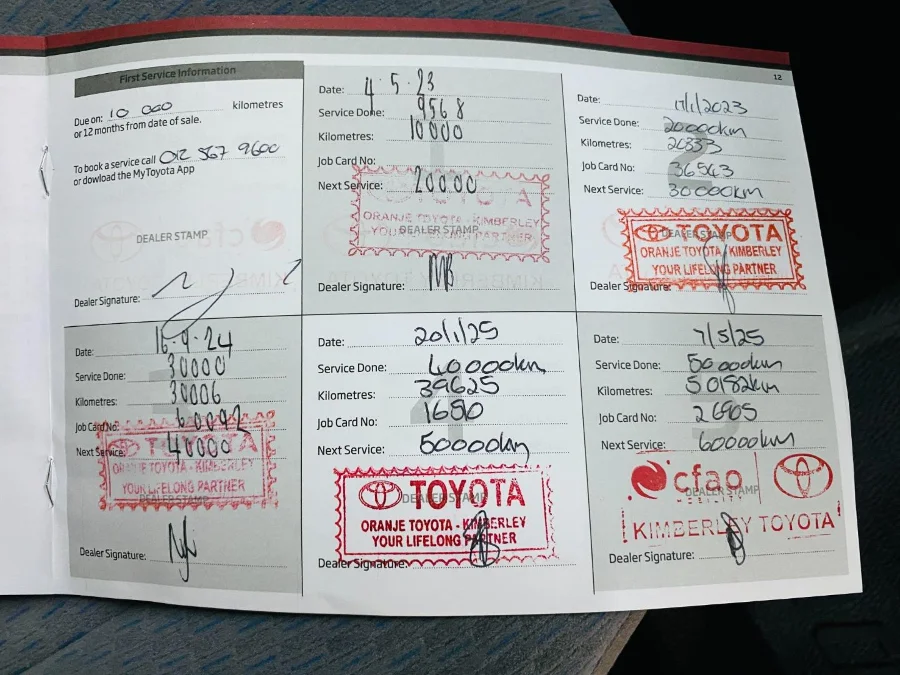 12
First Service Information
Due on: 10 000 kilometres
or 12 months from date of sale.
To book a service call 012 567 9600
or dowload the MyToyota App
DEALER STAMP
Dealer Signature:
Date: 4.5.23
Service Done: 9568
Kilometres: 10000
Job Card No:
Next Service: 20000
TOYOTA
ORANJE TOYOTA - KIMBERLEY
YOUR LIFELONG PARTNER
DEALER STAMP
Dealer Signature:
Date: 17/1/2023
Service Done: 20000km
Kilometres: 20333
Job Card No: 36543
Next Service: 30000km
DEALER STAMP
TOYOTA
ORANJE TOYOTA - KIMBERLEY
YOUR LIFELONG PARTNER
Dealer Signature:
Date: 16.9.24
Service Done: 30000
Kilometres: 30006
Job Card No: 60092
Next Service: 40000
TOYOTA
ORANJE TOYOTA - KIMBERLEY
YOUR LIFELONG PARTNER
DEALER STAMP
Dealer Signature:
4
Date: 20/1/25
Service Done: 40000km
Kilometres: 39625
Job Card No: 1680
Next Service: 50000km
DEALER STAMP
TOYOTA
ORANJE TOYOTA - KIMBERLEY
YOUR LIFELONG PARTNER
Dealer Signature:
5
Date: 7/5/25
Service Done: 50000km
Kilometres: 50182km
Job Card No: 26905
Next Service: 60000km
cfao
DEALER STAMP
KIMBERLEY TOYOTA
Dealer Signature: